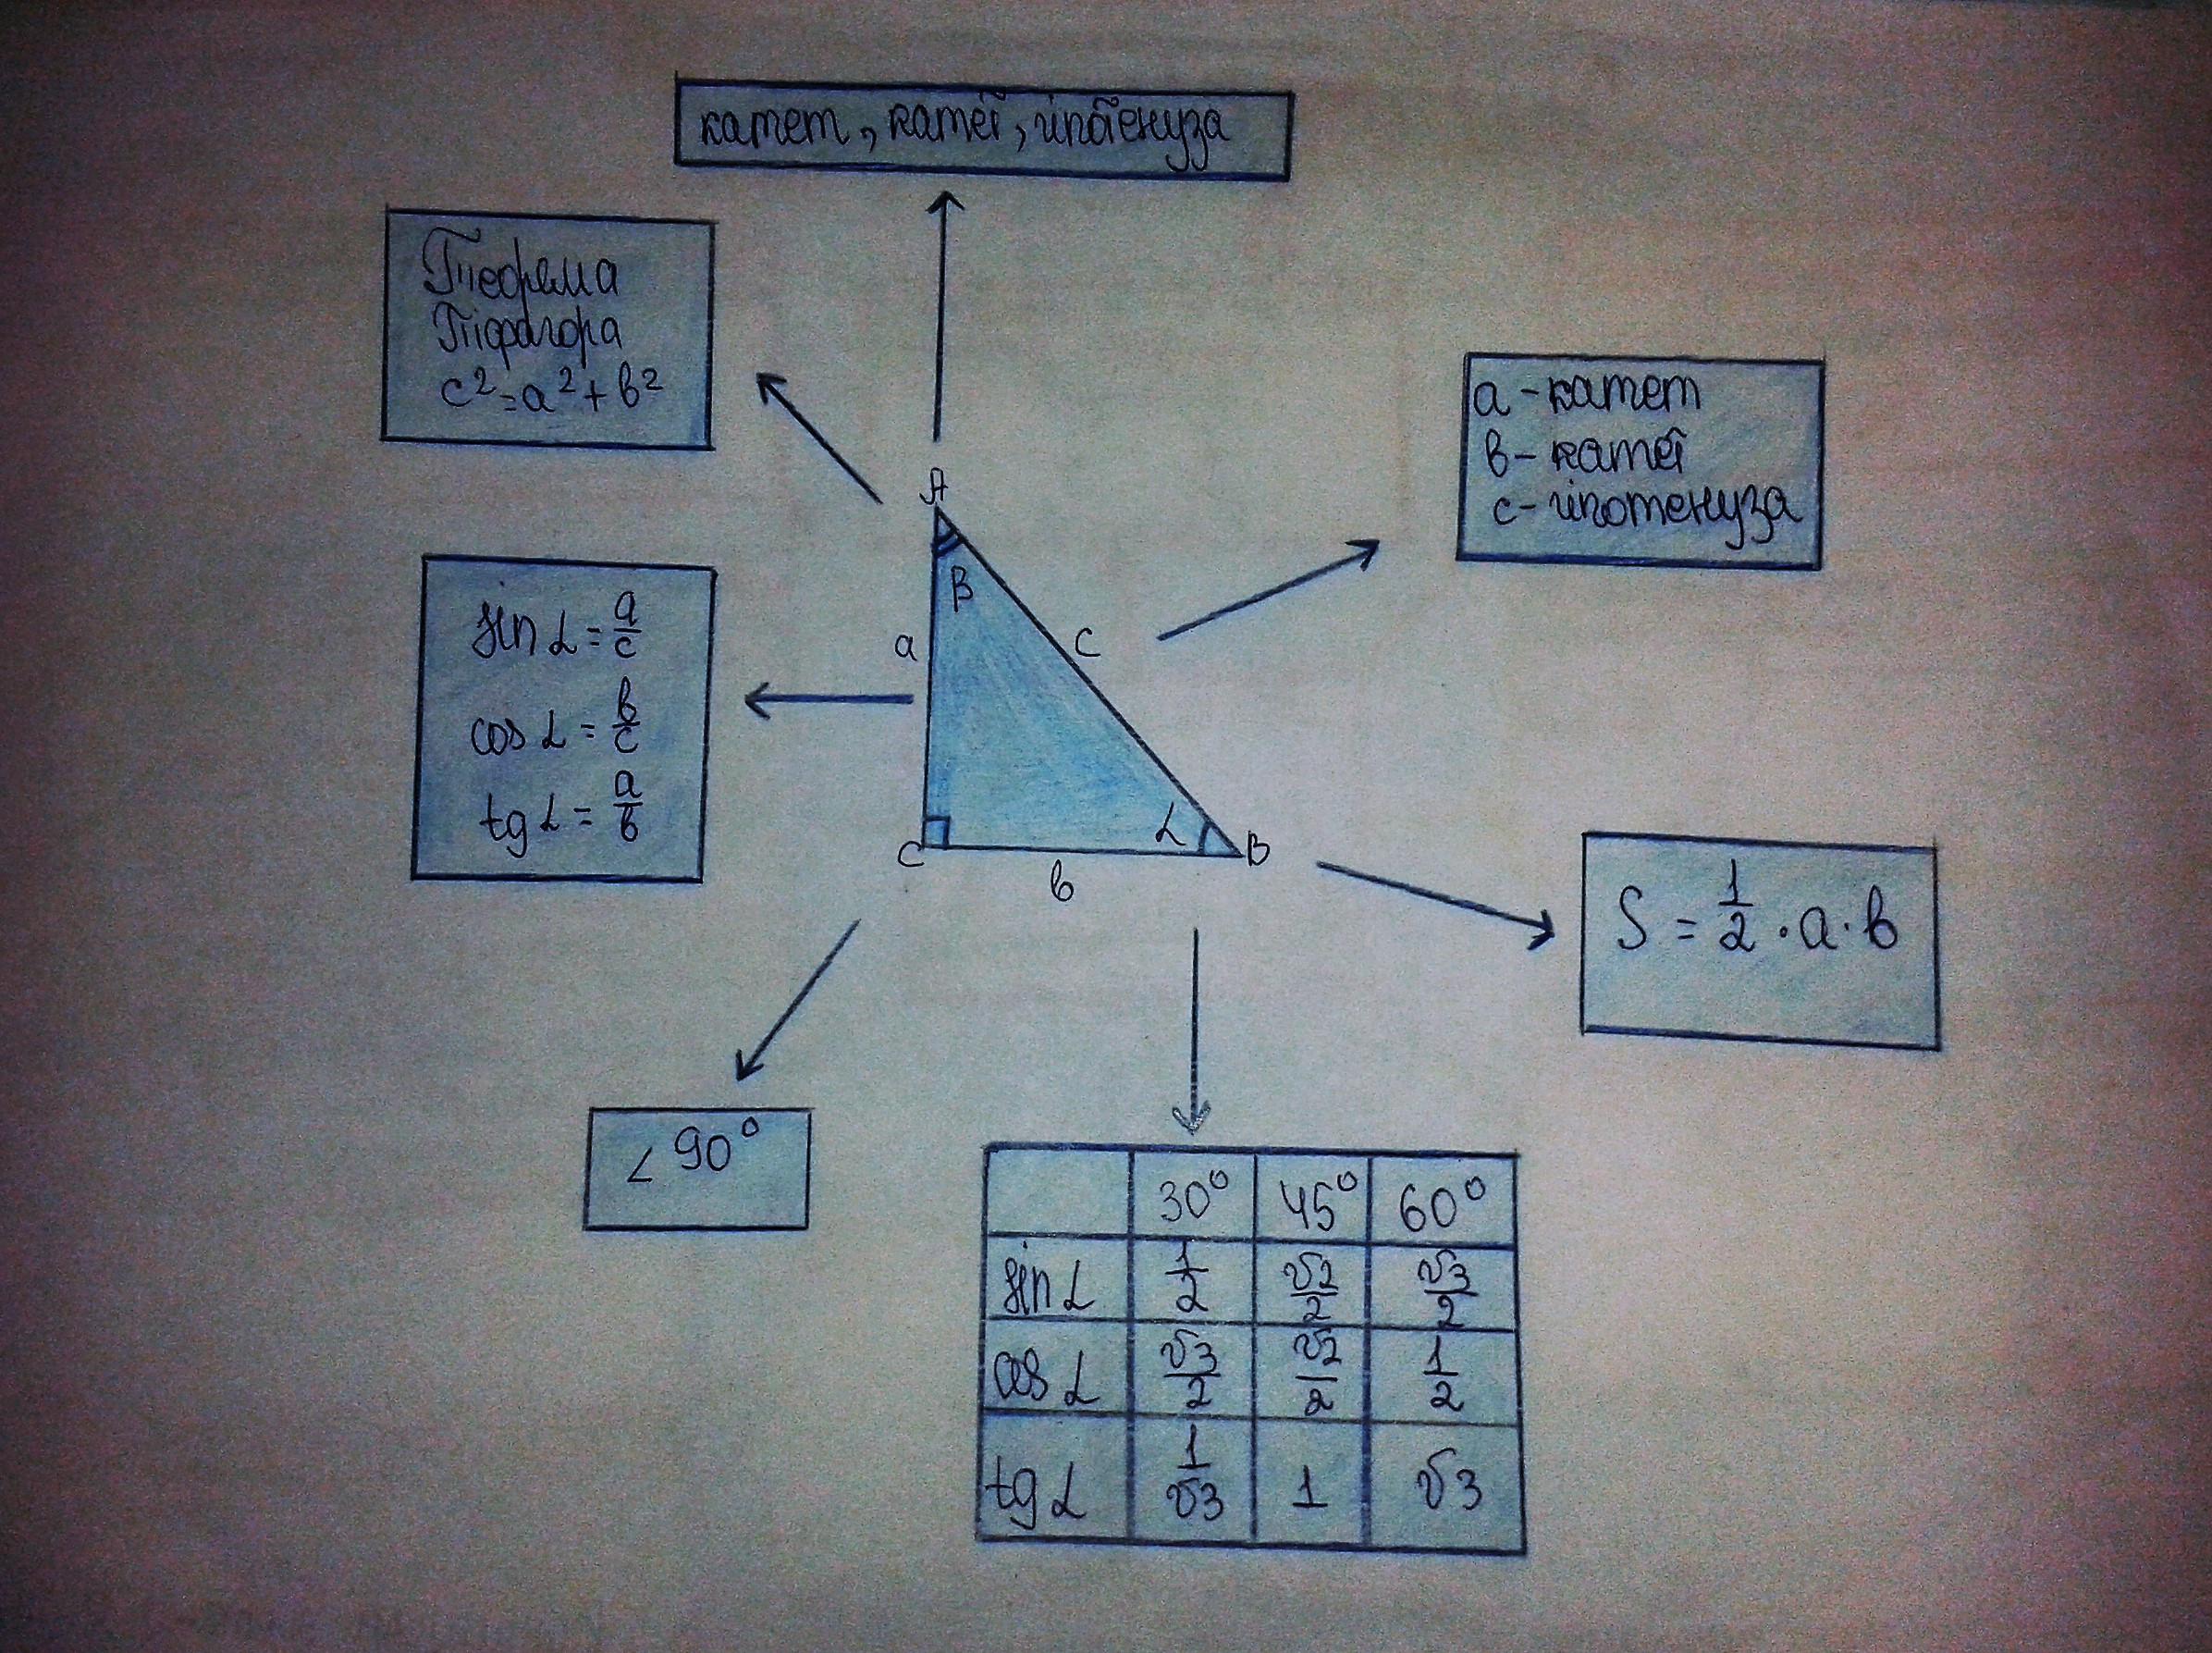 катет, катет, гіпотенуза
Теорема
Піфагора
c² = a² + b²
a - катет
b - катет
c - гіпотенуза
A
β
a
c
sin α = a/c
cos α = b/c
tg α = a/b
C
α
B
b
S = 1/2 · a · b
∠ 90°
30° 45° 60°
sin α 1/2 √2/2 √3/2
cos α √3/2 √2/2 1/2
tg α 1/√3 1 √3